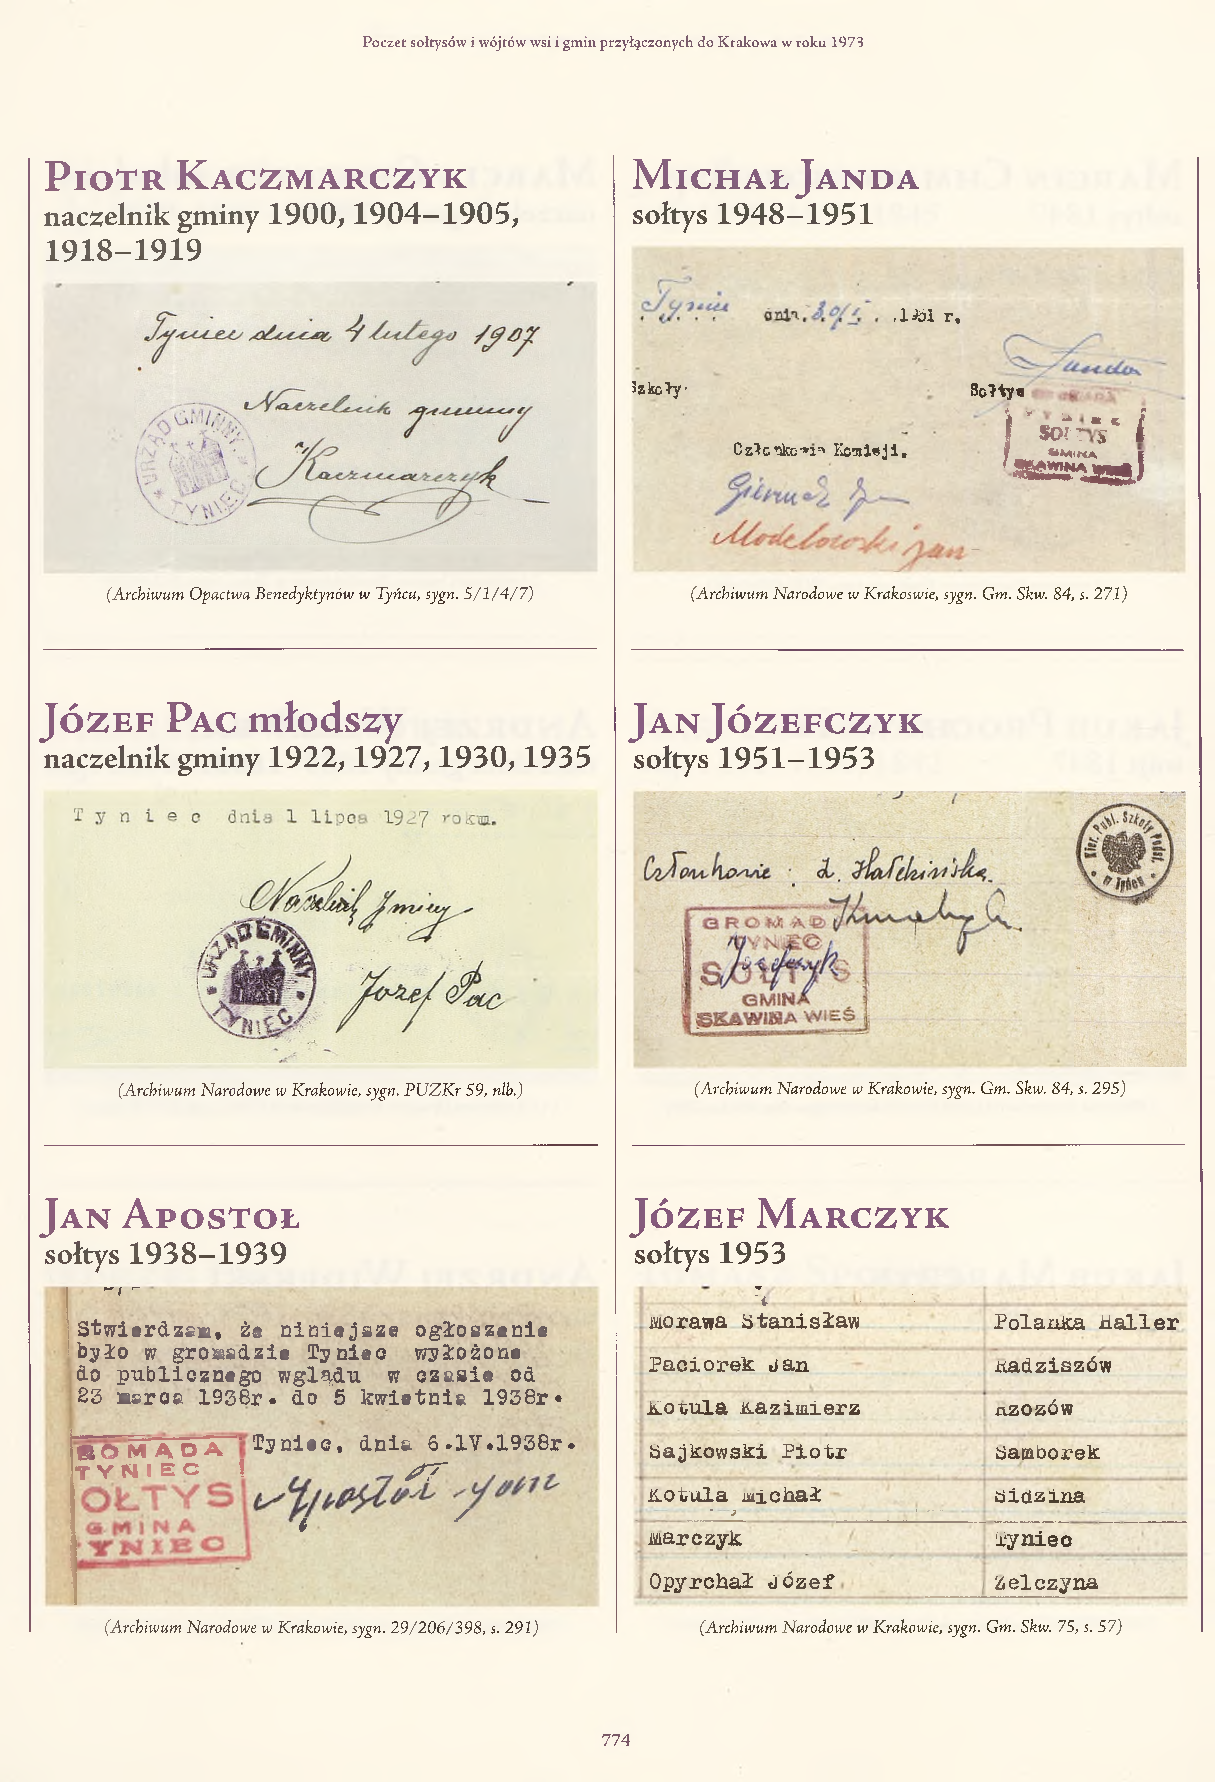 Poczet sołtysów i wójtów wsi i gmin przyłączonych do Krakowa w roku 1973
Piotr Kaczmarczyk
naczelnik gminy 1900, 1904–1905,
1918–1919
Tyniec dnia 4 lutego 1907
Naczelnik gminny
URZĄD GMINNY
TYNIEC
Kaczmarczyk
(Archiwum Opactwa Benedyktynów w Tyńcu, sygn. 5/1/4/7)
Józef Pac młodszy
naczelnik gminy 1922, 1927, 1930, 1935
Tyniec dnia 1 lipca 1927 roku.
Naczelnik Gminy
URZĄD GMINNY
TYNIEC
Jozef Pac
(Archiwum Narodowe w Krakowie, sygn. PUZKr 59, nlb.)
Jan Apostoł
sołtys 1938–1939
Stwierdzam, że niniejsze ogłoszenie
było w gromadzie Tyniec wyłożone
do publicznego wglądu w czasie od
23 marca 1938r. do 5 kwietnia 1938r.
Tyniec, dnia 6.IV.1938r.
ROMADA
TYNIEC
OŁTYS
GMINA
YNIEC
Apostół Jan
(Archiwum Narodowe w Krakowie, sygn. 29/206/398, s. 291)
Michał Janda
sołtys 1948–1951
Tyniec dnia 30/I 1951 r.
Janda
Szkoły Sołtys
TYNIEC
SOŁTYS
GMINA
SKAWINA WIEŚ
Członkowie Komisji.
Modelowski Jan
(Archiwum Narodowe w Krakoswie, sygn. Gm. Skw. 84, s. 271)
Jan Józefczyk
sołtys 1951–1953
Kier. Publ. Szkoły Podst.
w Tyńcu
Członkowie:
GROMAD
TYNIEC
SOŁTYS
GMINA
SKAWINA WIEŚ
(Archiwum Narodowe w Krakowie, sygn. Gm. Skw. 84, s. 295)
Józef Marczyk
sołtys 1953
Morawa Stanisław Polanka Haller
Paciorek Jan Radziszów
Kotula Kazimierz Rzozów
Sajkowski Piotr Samborek
Kotula Michał Sidzina
Marczyk Tyniec
Opyrchał Józef Zelczyna
(Archiwum Narodowe w Krakowie, sygn. Gm. Skw. 75, s. 57)
774